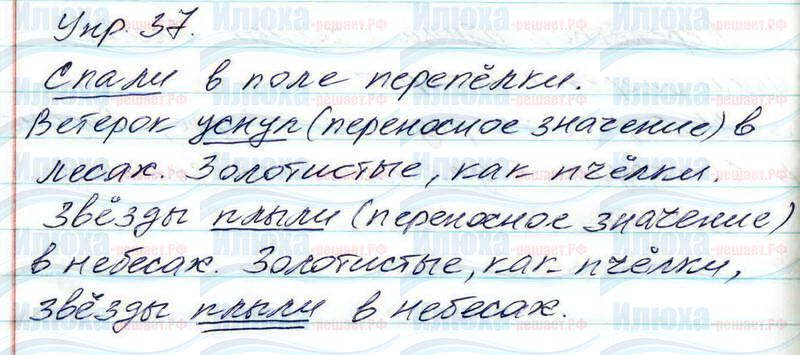 Упр. 37.
Спали в поле перепёлки.
Ветерок уснул (переносное значение) в
лесах. Золотистые, как пчёлки.
Звёзды плыли (переносное значение)
в небесах. Золотистые, как пчёлки,
звёзды плыли в небесах.